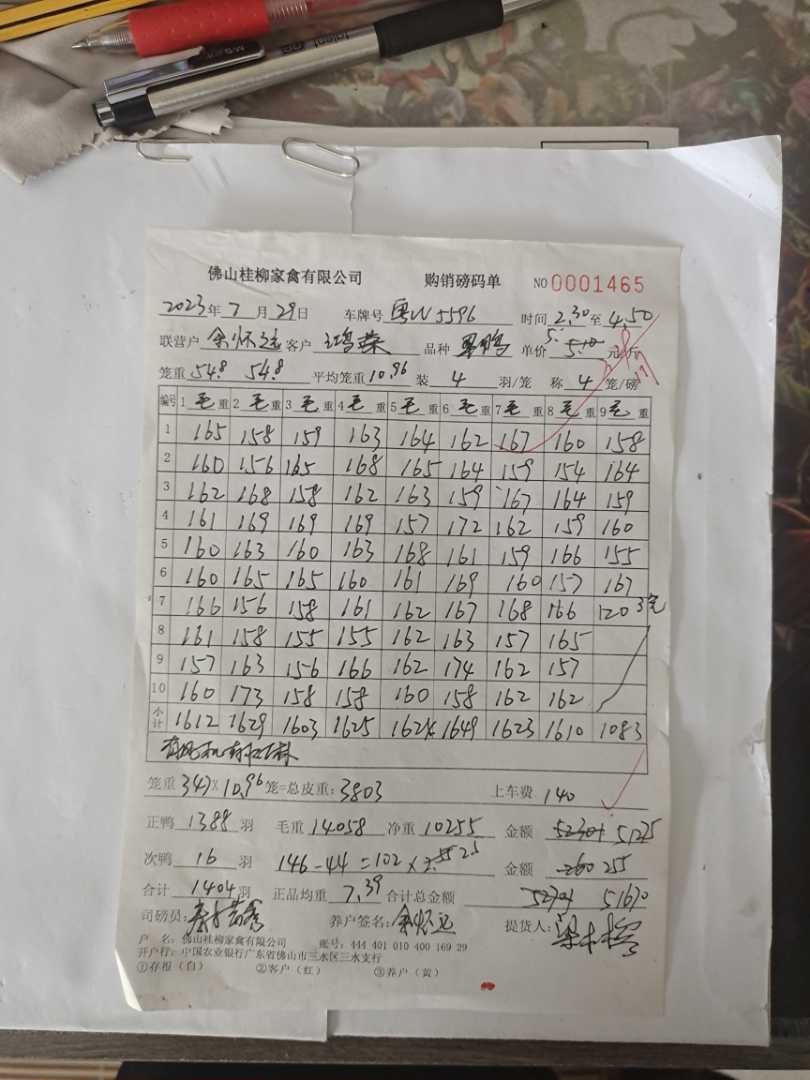 佛山桂柳家禽有限公司 购销磅码单 NO 0001465
2023年7月29日 车牌号 粤W5596 时间 2.30 至 4.50
联营户 余怀远 客户 鸿荣 品种 单价 5.10 元/斤
笼重 54.8 54.8 平均笼重 10.96 装 4 羽/笼 称 4 笼/磅
编号 1 毛重 2 毛重 3 毛重 4 毛重 5 毛重 6 毛重 7 毛重 8 毛重 9 毛重
1 165 158 159 163 164 162 167 160 158
2 160 156 165 168 165 164 159 154 164
3 162 168 158 162 163 159 167 164 159
4 161 169 169 169 157 172 162 159 160
5 160 163 160 163 168 161 159 166 155
6 160 165 165 160 161 169 160 157 167
7 166 156 158 161 162 167 168 166 120 3笼
8 161 158 155 155 162 163 157 165
9 157 163 156 166 162 174 162 157
10 160 173 158 158 160 158 162 162
小计 1612 1629 1603 1625 1624 1649 1623 1610 1083
笼重 347×10.96 笼=总皮重: 3803 上车费 140
正鸭 1388 羽 毛重 14058 净重 10255 金额 51275
次鸭 16 羽 146-44=102× 2.5 金额 255
合计 1404 羽 正品均重 7.39 合计总金额 51670
司磅员: 养户签名: 余怀远 提货人:
户 名: 佛山桂柳家禽有限公司 账号: 444 401 010 400 169 29
开户行: 中国农业银行广东省佛山市三水区三水支行
①存报（白） ②客户（红） ③养户（黄）